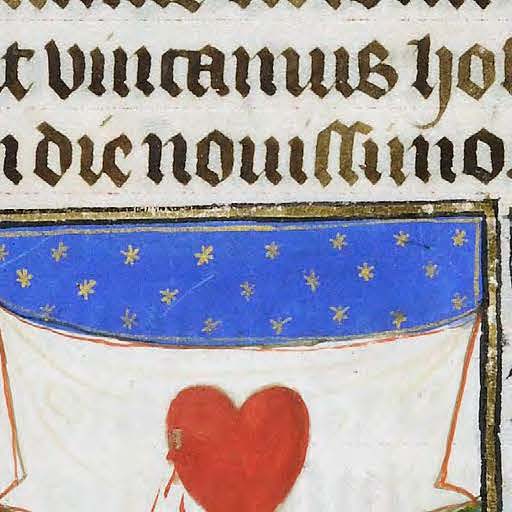 t vincamus ho
n die nouissimo.